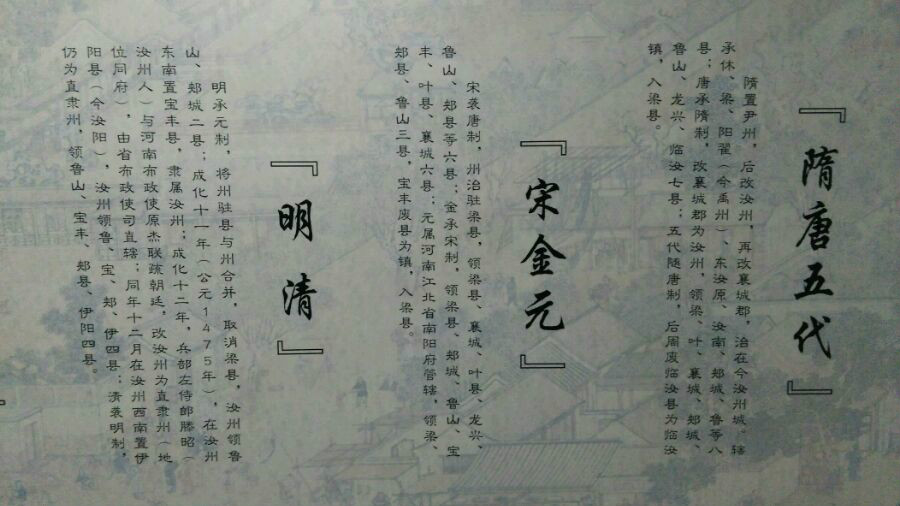 『隋唐五代』
隋置尹州，后改汝州，再改襄城郡，治在今汝州城。辖
承休、梁、阳翟（今禹州）、东汝原、汝南、郏城、鲁等八
县；唐承隋制，改襄城郡为汝州，领梁、叶、襄城、郏城、
鲁山、龙兴、临汝七县；五代随唐制，后周废临汝县为临汝
镇，入梁县。
『宋金元』
宋袭唐制，州治驻梁县，领梁县、襄城、叶县、龙兴、
鲁山、郏县等六县；金承宋制，领梁县、郏城、鲁山、宝
丰、叶县、襄城六县；元属河南江北省南阳府管辖，领梁、
郏县、鲁山三县，宝丰废县为镇，入梁县。
『明清』
明承元制，将州驻县与州合并，取消梁县，汝州领鲁
山、郏城二县；成化十一年（公元1475年），在汝州
东南置宝丰县，隶属汝州；成化十二年，兵部左侍郎滕昭（
汝州人）与河南布政使原杰联疏朝廷，改汝州为直隶州（地
位同府），由省布政使司直辖；同年十二月在汝州西南置伊
阳县（今汝阳），汝州领鲁、宝、郏、伊四县；清袭明制，
仍为直隶州，领鲁山、宝丰、郏县、伊阳四县。